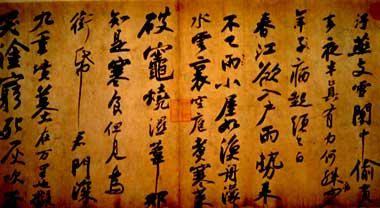 汙燕支雪闇中偷負
夜半真有力何殊少
年子病起頭已白
春江欲入戶雨勢来
不已雨小屋如漁舟濛
水雲裏空庖煮寒菜
破竈燒濕葦那
知是寒食但見烏
銜帋君門深
九重墳墓在万里也擬
哭塗窮死灰吹不